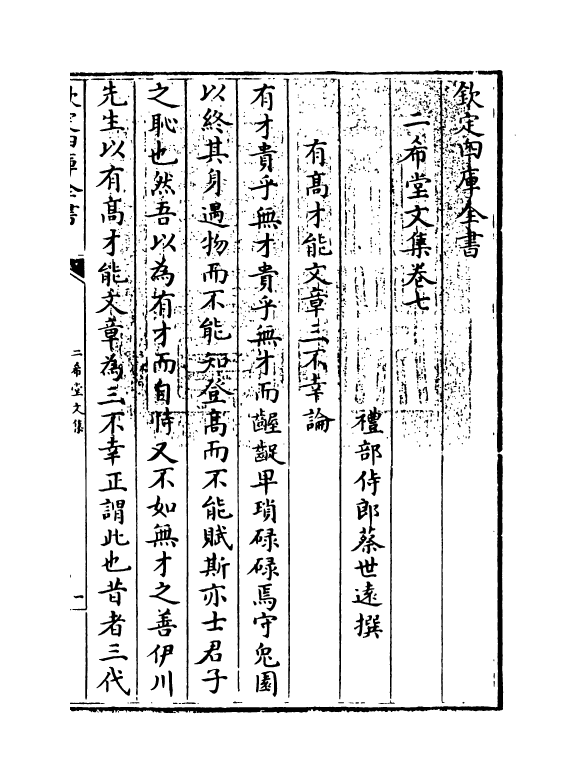 欽定四庫全書
二希堂文集卷七
禮部侍郎蔡世遠撰
有髙才能文章三不幸論
有才貴乎無才貴乎無才而齷齪卑瑣碌碌焉守兔園
以終其身遇物而不能知登髙而不能賦斯亦士君子
之恥也然吾以為有才而自恃又不如無才之善伊川
先生以有髙才能文章為三不幸正謂此也昔者三代
欽定四庫全書
二希堂文集
一